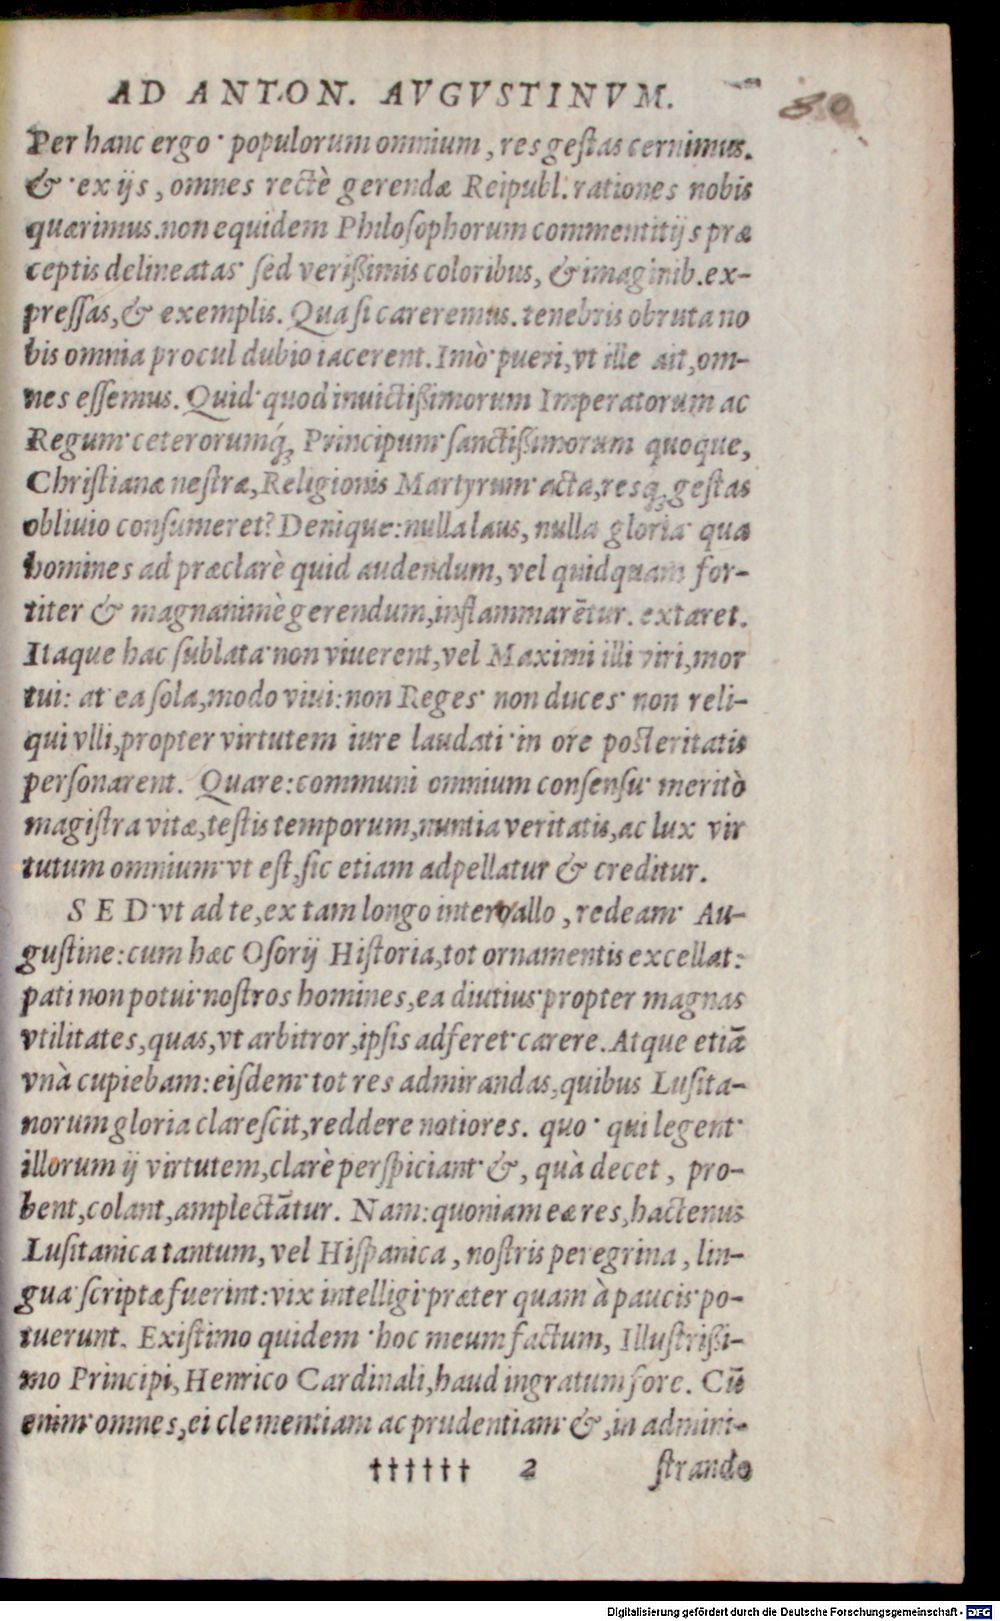 AD ANTON. AVGVSTINVM.
80
Per hanc ergo populorum omnium, res gestas cernimus.
& ex ijs, omnes rectè gerendæ Reipubl. rationes nobis
quærimus. non equidem Philosophorum commentitijs præ
ceptis delineatas sed verißimis coloribus, & imaginib. ex-
pressas, & exemplis. Qua si careremus. tenebris obruta no
bis omnia procul dubio iacerent. Imò pueri, vt ille ait, om-
nes essemus. Quid quod inuictißimorum Imperatorum ac
Regum ceterorumq́; Principum sanctißimorum quoque,
Christianæ nestræ, Religionis Martyrum acta, resq; gestas
obliuio consumeret? Denique: nulla laus, nulla gloria qua
homines ad præclarè quid audendum, vel quidquam for-
titer & magnanimè gerendum, inflammarētur. extaret.
Itaque hac sublata non viuerent, vel Maximi illi viri, mor
tui: at ea sola, modo viui: non Reges non duces non reli-
qui vlli, propter virtutem iure laudati in ore posteritatis
personarent. Quare: communi omnium consensu meritò
magistra vitæ, testis temporum, nuntia veritatis, ac lux vir
tutum omnium vt est, sic etiam adpellatur & creditur.
SED vt ad te, ex tam longo interuallo, redeam Au-
gustine: cum hæc Osorij Historia, tot ornamentis excellat:
pati non potui nostros homines, ea diutius propter magnas
vtilitates, quas, vt arbitror, ipsis adferet carere. Atque etiā
vnà cupiebam: eisdem tot res admirandas, quibus Lusita-
norum gloria clarescit, reddere notiores. quo qui legent
illorum ij virtutem, clarè perspiciant &, quà decet, pro-
bent, colant, amplectātur. Nam: quoniam eæ res, hactenus
Lusitanica tantum, vel Hispanica, nostris peregrina, lin-
gua scriptæ fuerint: vix intelligi præter quam à paucis po-
tuerunt. Existimo quidem hoc meum factum, Illustrißi-
mo Principi, Henrico Cardinali, haud ingratum fore. Cū
enim omnes, ei clementiam ac prudentiam &, in admini-
†††††† 2 strando
Digitalisierung gefördert durch die Deutsche Forschungsgemeinschaft - DFG